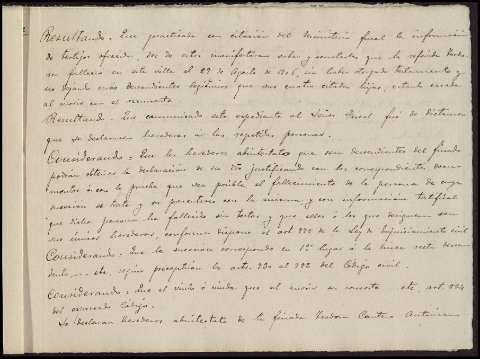 Resultando: Que practicada con citación del Ministerio fiscal la información
de testigos ofrecida, dos de estos manifiestan saber y constarles que la referida
falleció en esta villa el 29 de Agosto de 1906, sin haber otorgado testamento y
no dejando más descendientes legítimos que sus cuatro citados hijos, estando casada
al morir con el
Resultando: Que comunicado este expediente al Señor Fiscal fué de dictamen
que se declarasen herederos á las repetidas personas.
Considerando: Que los herederos abintestato que sean descendientes del finado
podrán obtener la declaración de su dro justificando con los correspondientes docu-
mentos ó con la prueba que sea posible el fallecimiento de la persona de cuya
sucesión se trate y su parentesco con la misma, y con información testifical
que dicha persona ha fallecido sin testar y que ellos ó los que designen son
sus únicos herederos, conforme dispone el art de la Ley de Enjuiciamiento civil
Considerando: Que la sucesión corresponde en 1er lugar á la línea recta descen-
dente, etc, según preceptúan los arts. 930 al 932 del Código civil.
Considerando: Que el viudo ó viuda que al morir su consorte etc. art. 834
del expresado Código.
Se declaran herederos abintestato de la finada